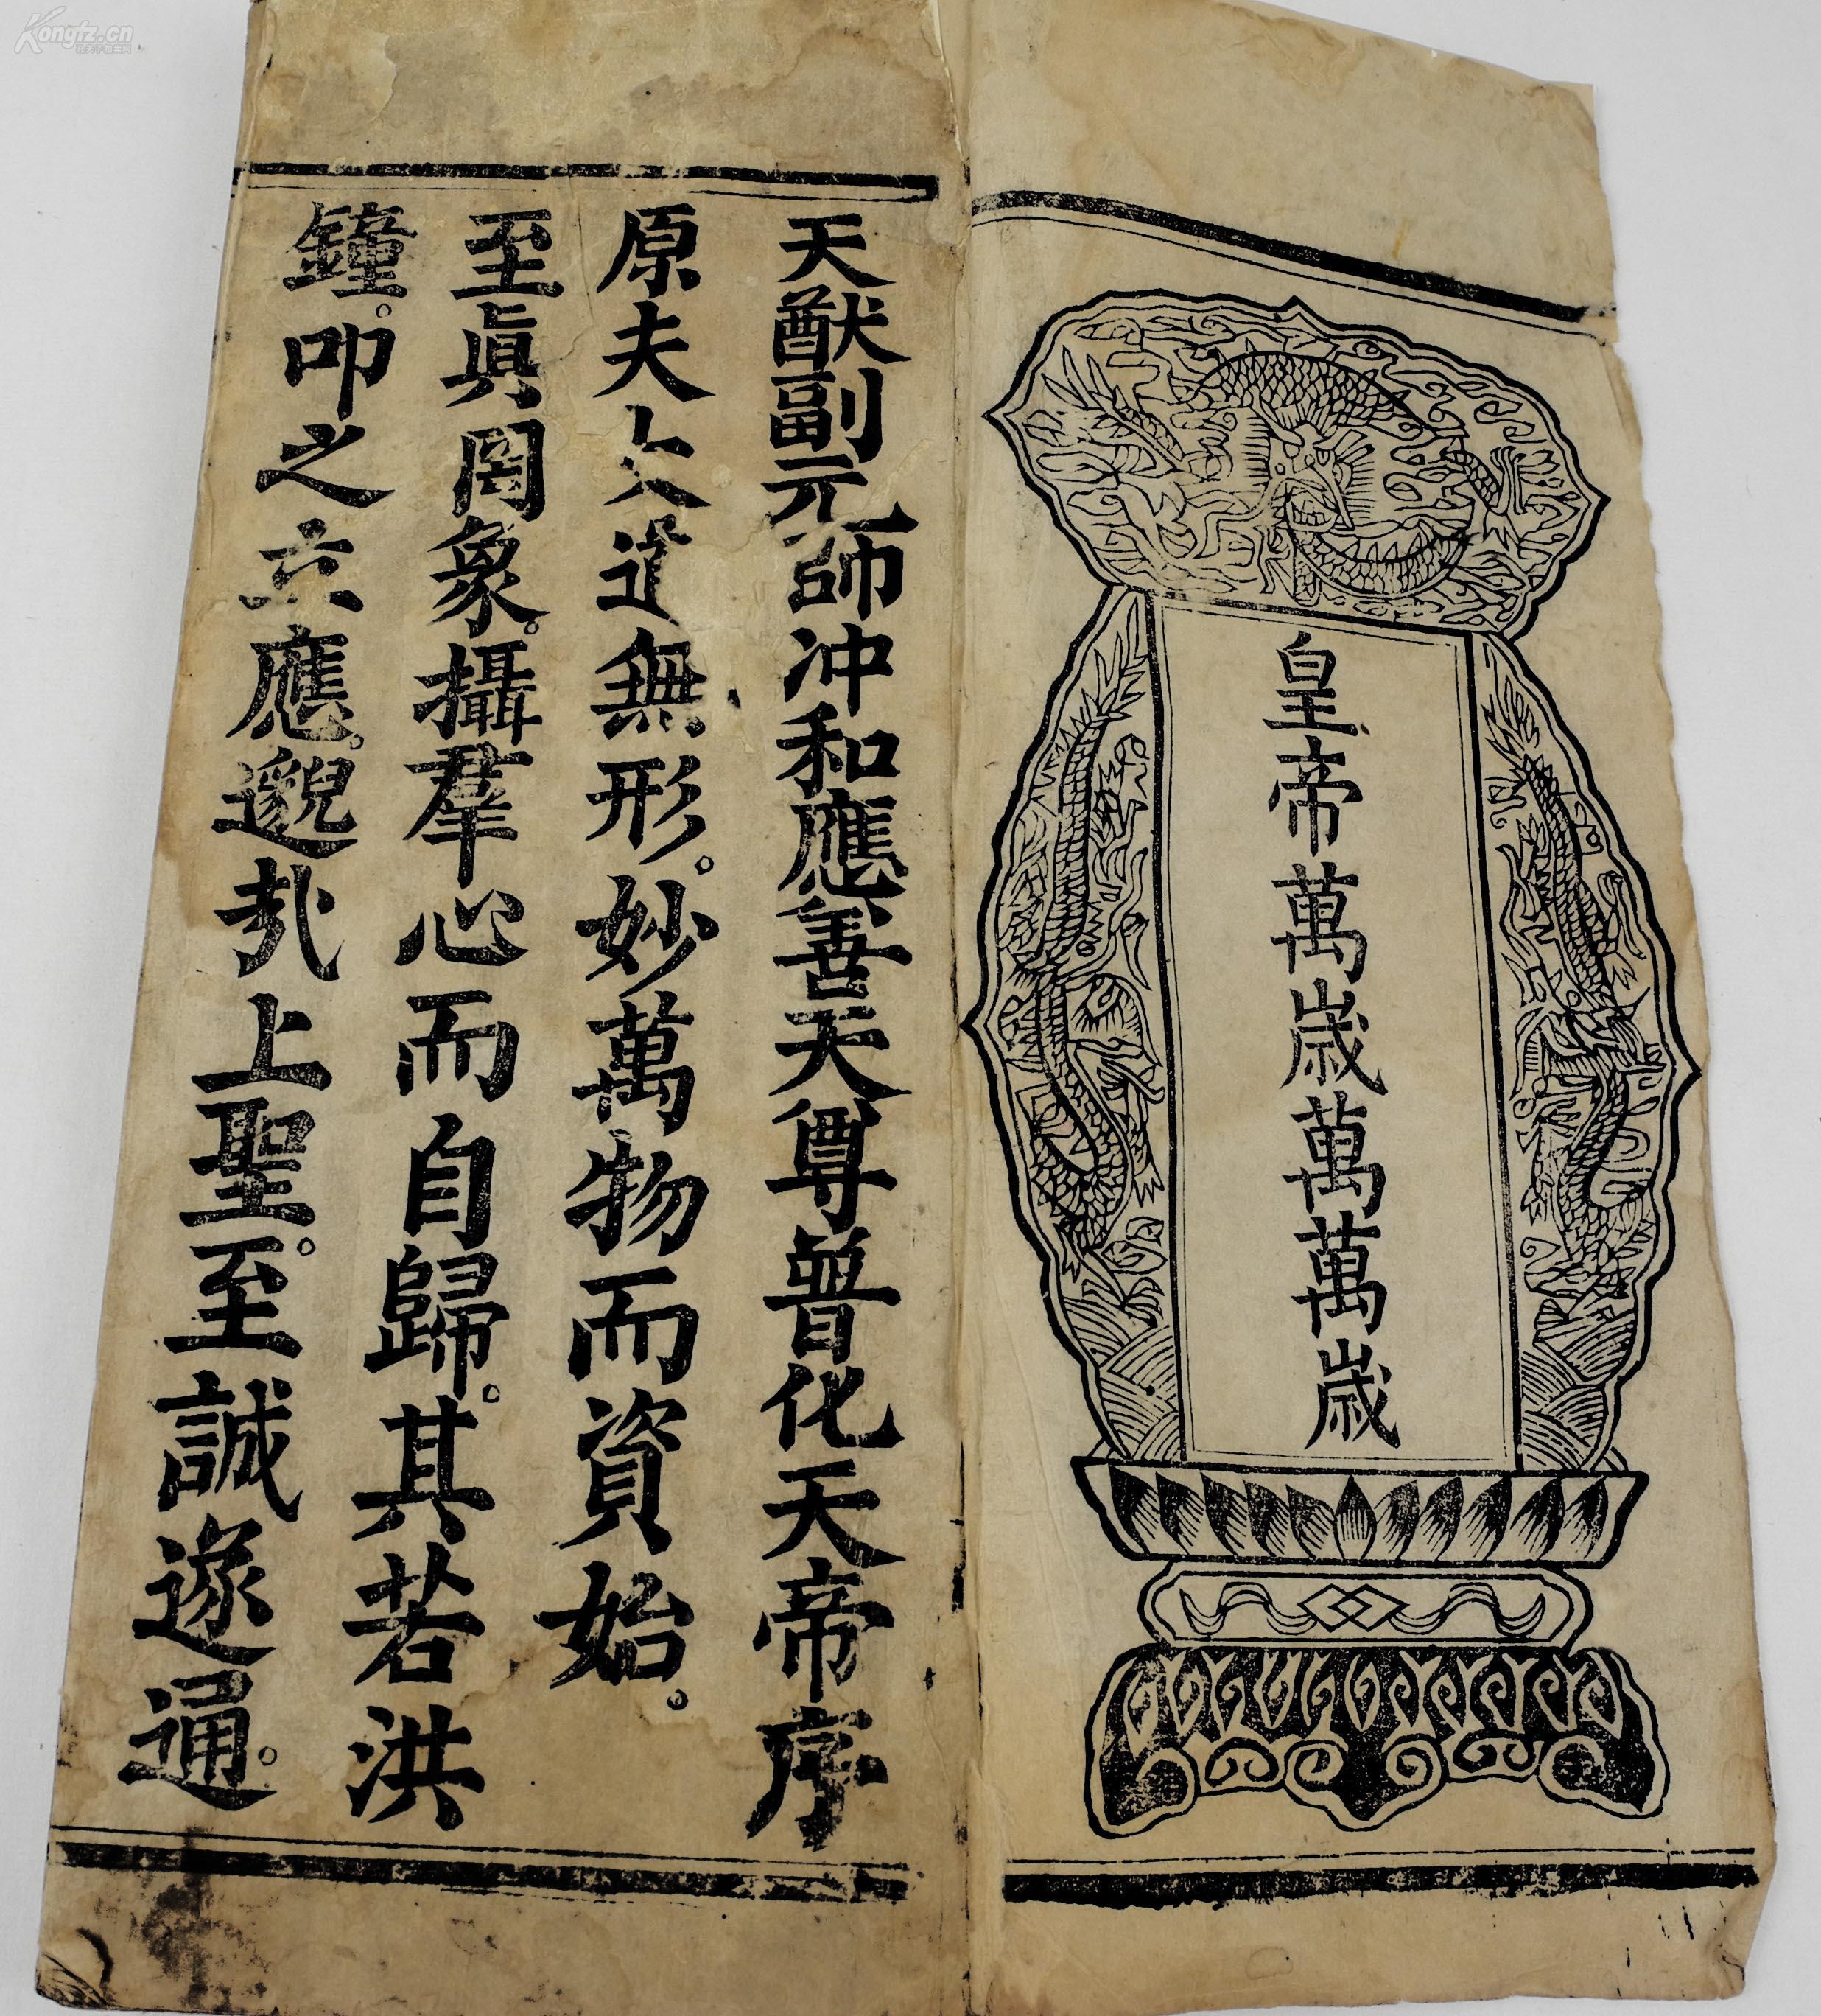 皇帝萬歲萬萬歲
天猷副元帥冲和應善天尊普化天帝序
原夫大道無形。妙萬物而資始。
至眞罔象。攝羣心而自歸。其若洪
鐘。叩之六應。邈哉上聖。至誠遂通。
Kongfz.cn